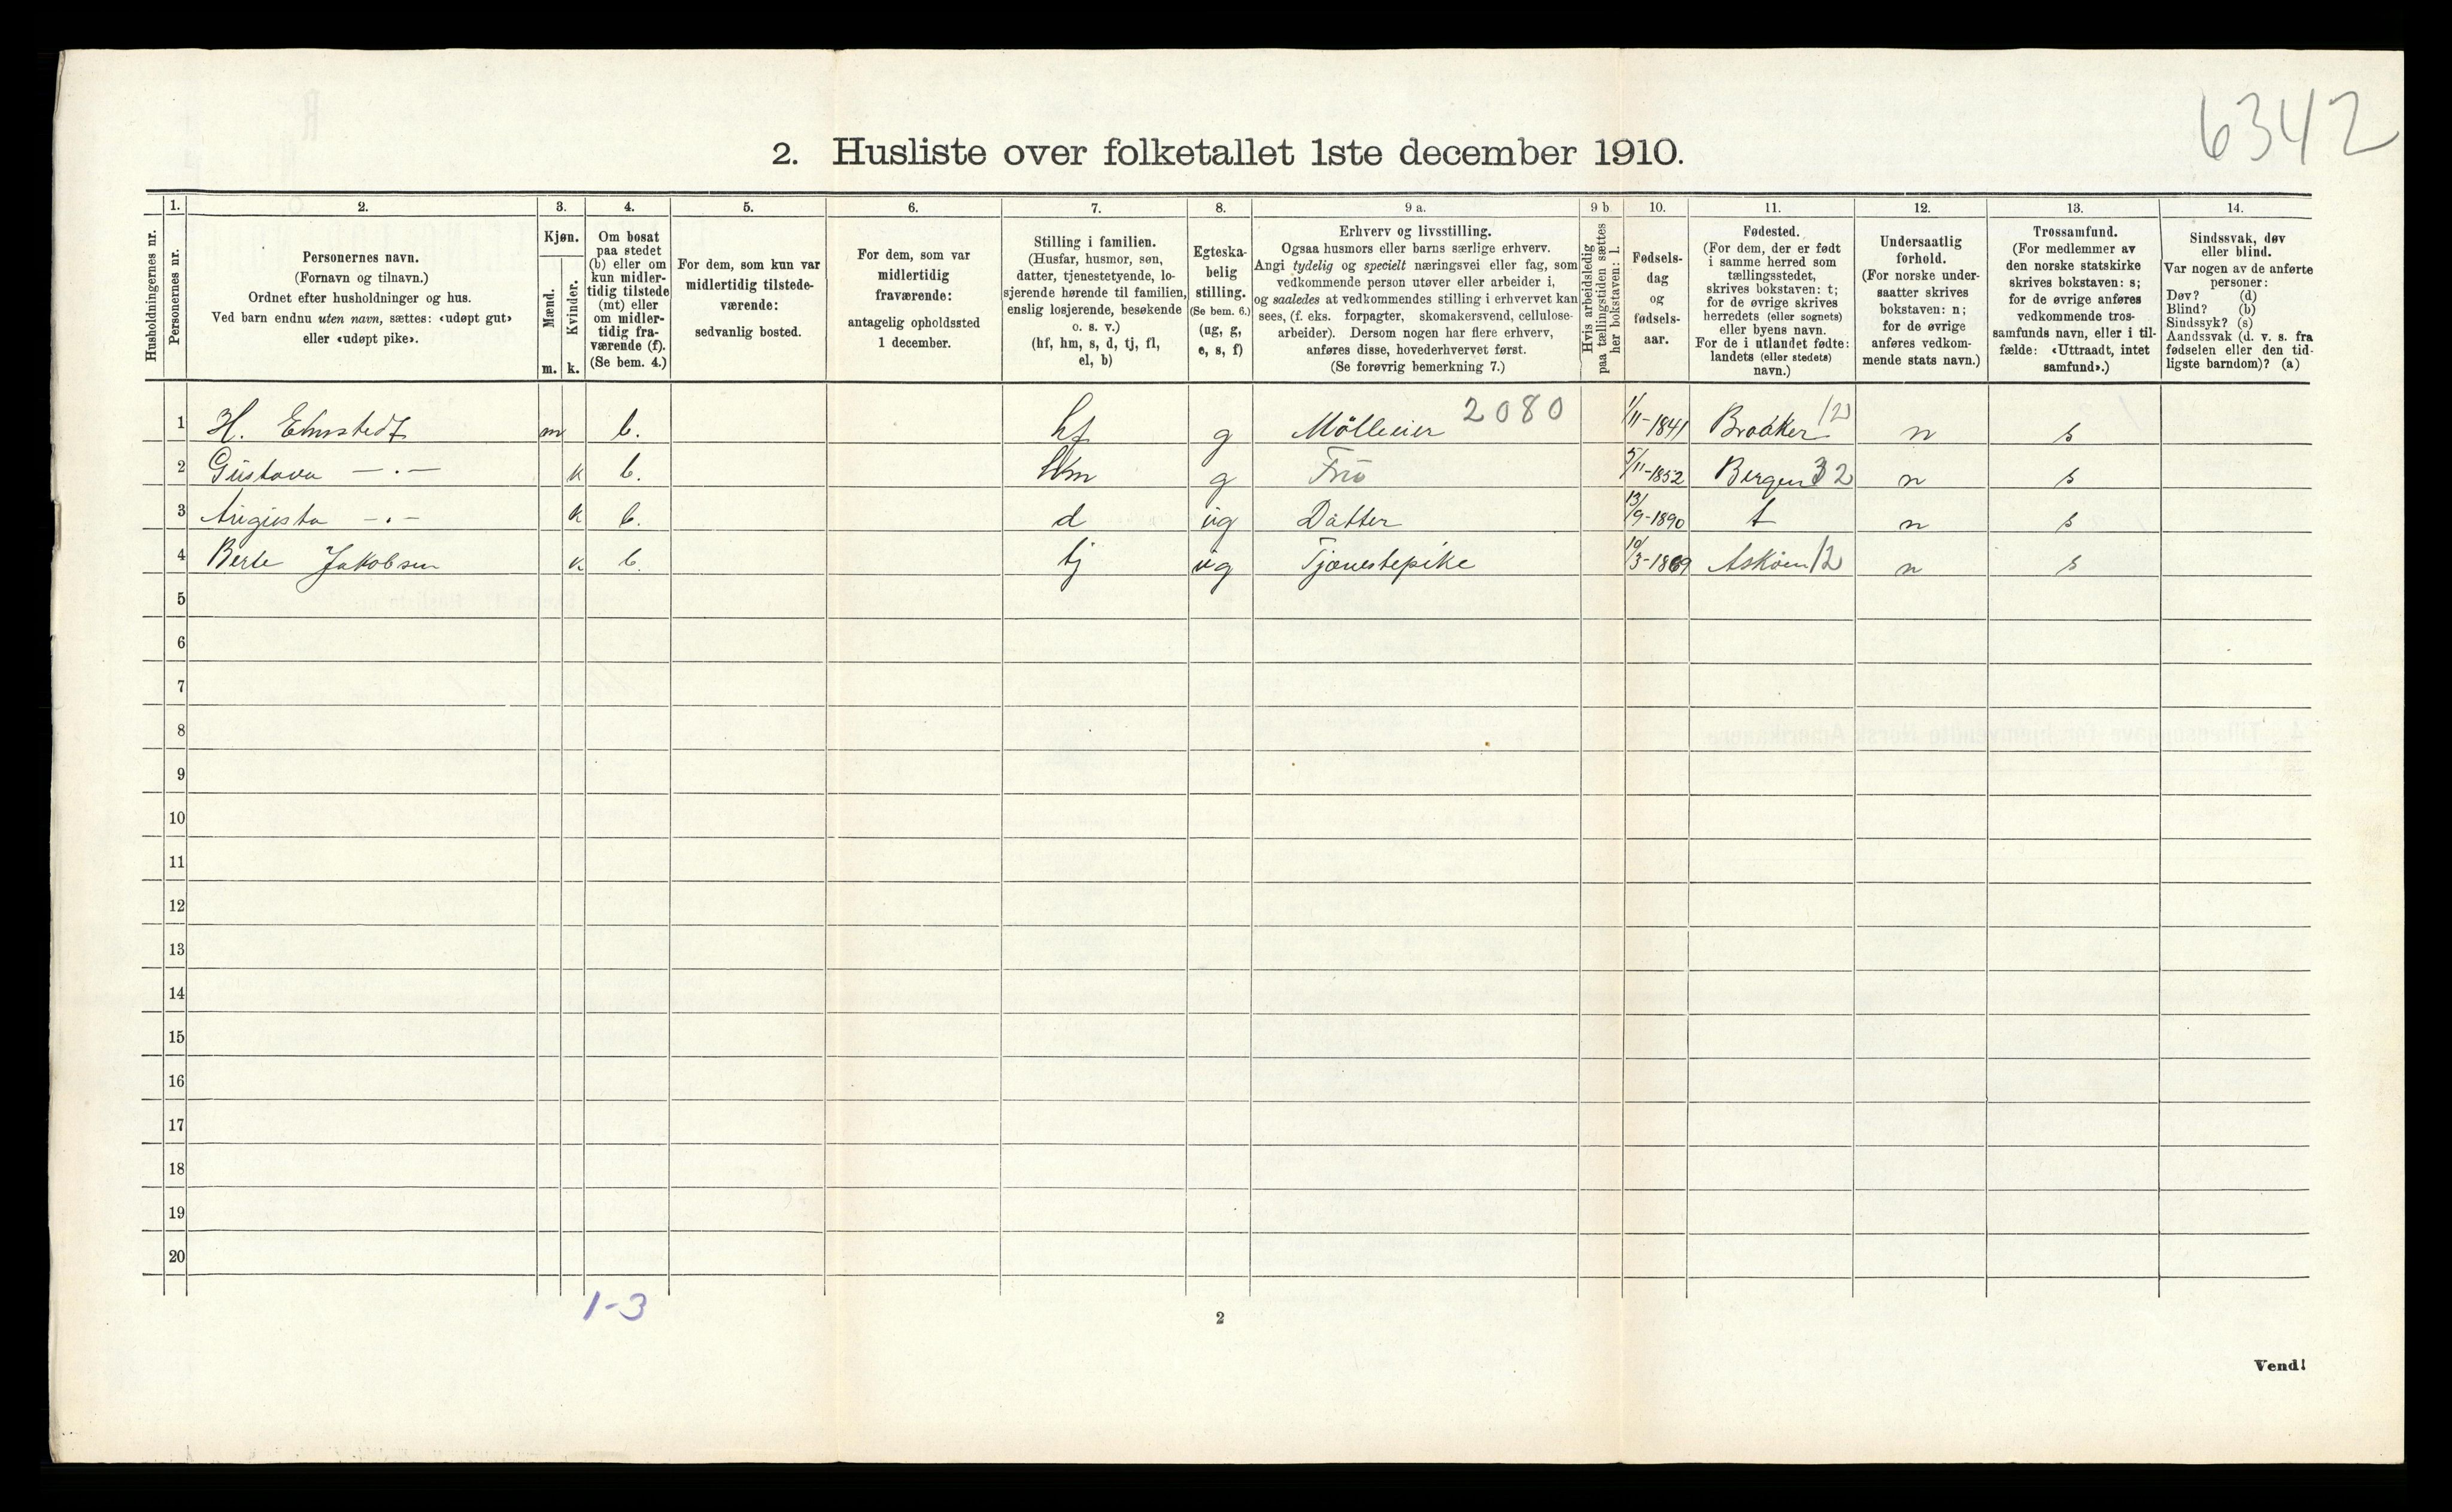 6342
2. Husliste over folketallet 1ste december 1910.
Husholdningernes nr.
1. Personernes nr.
2. Personernes navn. (Fornavn og tilnavn.) Ordnet efter husholdninger og hus. Ved barn endnu uten navn, sættes: «udøpt gut» eller «udøpt pike».
3. Kjøn. Mænd. m. Kvinder. k.
4. Om bosat paa stedet (b) eller om kun midlertidig tilstede (mt) eller om midlertidig fraværende (f). (Se bem. 4.)
5. For dem, som kun var midlertidig tilstedeværende: sedvanlig bosted.
6. For dem, som var midlertidig fraværende: antagelig opholdssted 1 december.
7. Stilling i familien. (Husfar, husmor, søn, datter, tjenestetyende, losjerende hørende til familien, enslig losjerende, besøkende o. s. v.) (hf, hm, s, d, tj, fl, el, b)
8. Egteskabelig stilling. (Se bem. 6.) (ug, g, e, s, f)
9 a. Erhverv og livsstilling. Ogsaa husmors eller barns særlige erhverv. Angi tydelig og specielt næringsvei eller fag, som vedkommende person utøver eller arbeider i, og saaledes at vedkommendes stilling i erhvervet kan sees, (f. eks. forpagter, skomakersvend, cellulosearbeider). Dersom nogen har flere erhverv, anføres disse, hovederhvervet først. (Se forøvrig bemerkning 7.)
9 b. Hvis arbeidsledig paa tællingstiden sættes her bokstaven: l.
10. Fødselsdag og fødselsaar.
11. Fødested. (For dem, der er født i samme herred som tællingsstedet, skrives bokstaven: t; for de øvrige skrives herredets (eller sognets) eller byens navn. For de i utlandet fødte: landets (eller stedets) navn.)
12. Undersaatlig forhold. (For norske undersaatter skrives bokstaven: n; for de øvrige anføres vedkommende stats navn.)
13. Trossamfund. (For medlemmer av den norske statskirke skrives bokstaven: s; for de øvrige anføres vedkommende trossamfunds navn, eller i tilfælde: «Uttraadt, intet samfund».)
14. Sindssvak, døv eller blind. Var nogen av de anførte personer: Døv? (d) Blind? (b) Sindssyk? (s) Aandssvak (d. v. s. fra fødselen eller den tidligste barndom)? (a)
1 H. Ehmstedt m b. hf g Mölleeier 2080 1/11-1841 Broåker 12 n s
2 Gustava — . — k b. hm g Frú 5/11-1852 Bergen 32 n s
3 Augusta — . — k b. d ug Datter 13/9-1890 t n s
4 Berte Jakobsen k b. tj ug Tjænestepike 10/3-1869 Askøen 12 n s
5
6
7
8
9
10
11
12
13
14
15
16
17
18
19
20
1-3
2
Vend!